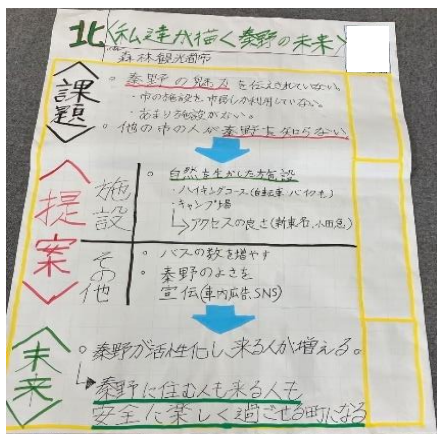 北〈私達が描く秦野の未来〉
森林観光都市
〈課題〉
。秦野の魅力を伝えきれていない。
・市の施設を市民しか利用していない。
・あまり施設がない。
。他の市の人が秦野を知らない
〈提案〉
施設
。自然を生かした施設
・ハイキングコース(自転車、バイクも)
・キャンプ場
→アクセスの良さ(新東名、小田急)
その他
。バスの数を増やす
。秦野のよさを
宣伝(車内広告、SNS)
〈未来〉
。秦野が活性化し、来る人が増える。
→秦野に住む人も来る人も
安全に楽しく過ごせる町になる